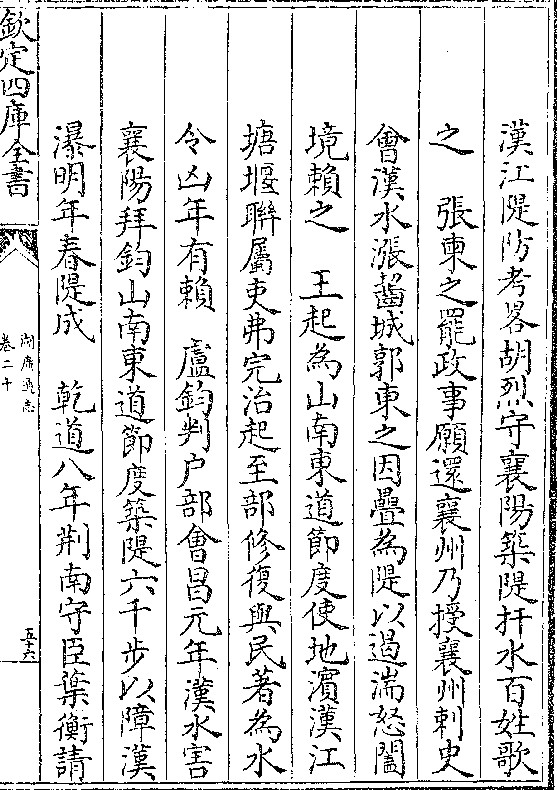 漢江隄防考畧胡烈守襄陽築隄扞水百姓歌
之　張柬之罷政事願還襄州乃授襄州刺史
㑹漢水漲齧城郭東之因疊為隄以遏湍怒闔
境賴之　王起為山南東道節度使地濵漢江
塘堰聨屬吏弗完治起至部修復與民著為水
令凶年有賴　盧鈞判户部㑹昌元年漢水害
襄陽拜鈞山南東道節度築隄六千步以障漢
瀑明年春隄成　乾道八年荆南守臣葉衡請
欽定四庫全書
湖廣通志
卷二十
五十六